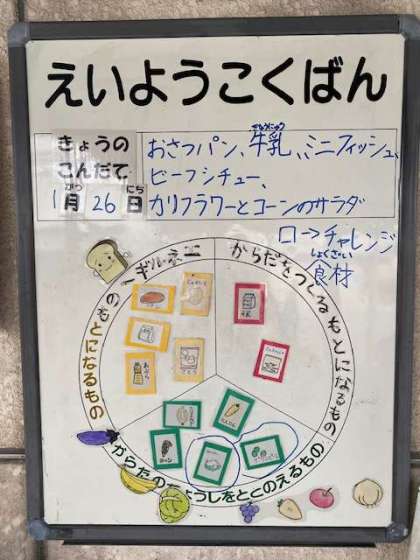 えいようこくばん
きょうの
こんだて
1月26日
がつ
にち
おさつパン、牛乳、ミニフィッシュ、
ぎゅうにゅう
ビーフシチュー、
カリフラワーとコーンのサラダ
□→チャレンジ
しょくざい
食材
エネルギーのもとになるもの
からだをつくるもとになるもの
からだのちょうしをととのえるもの